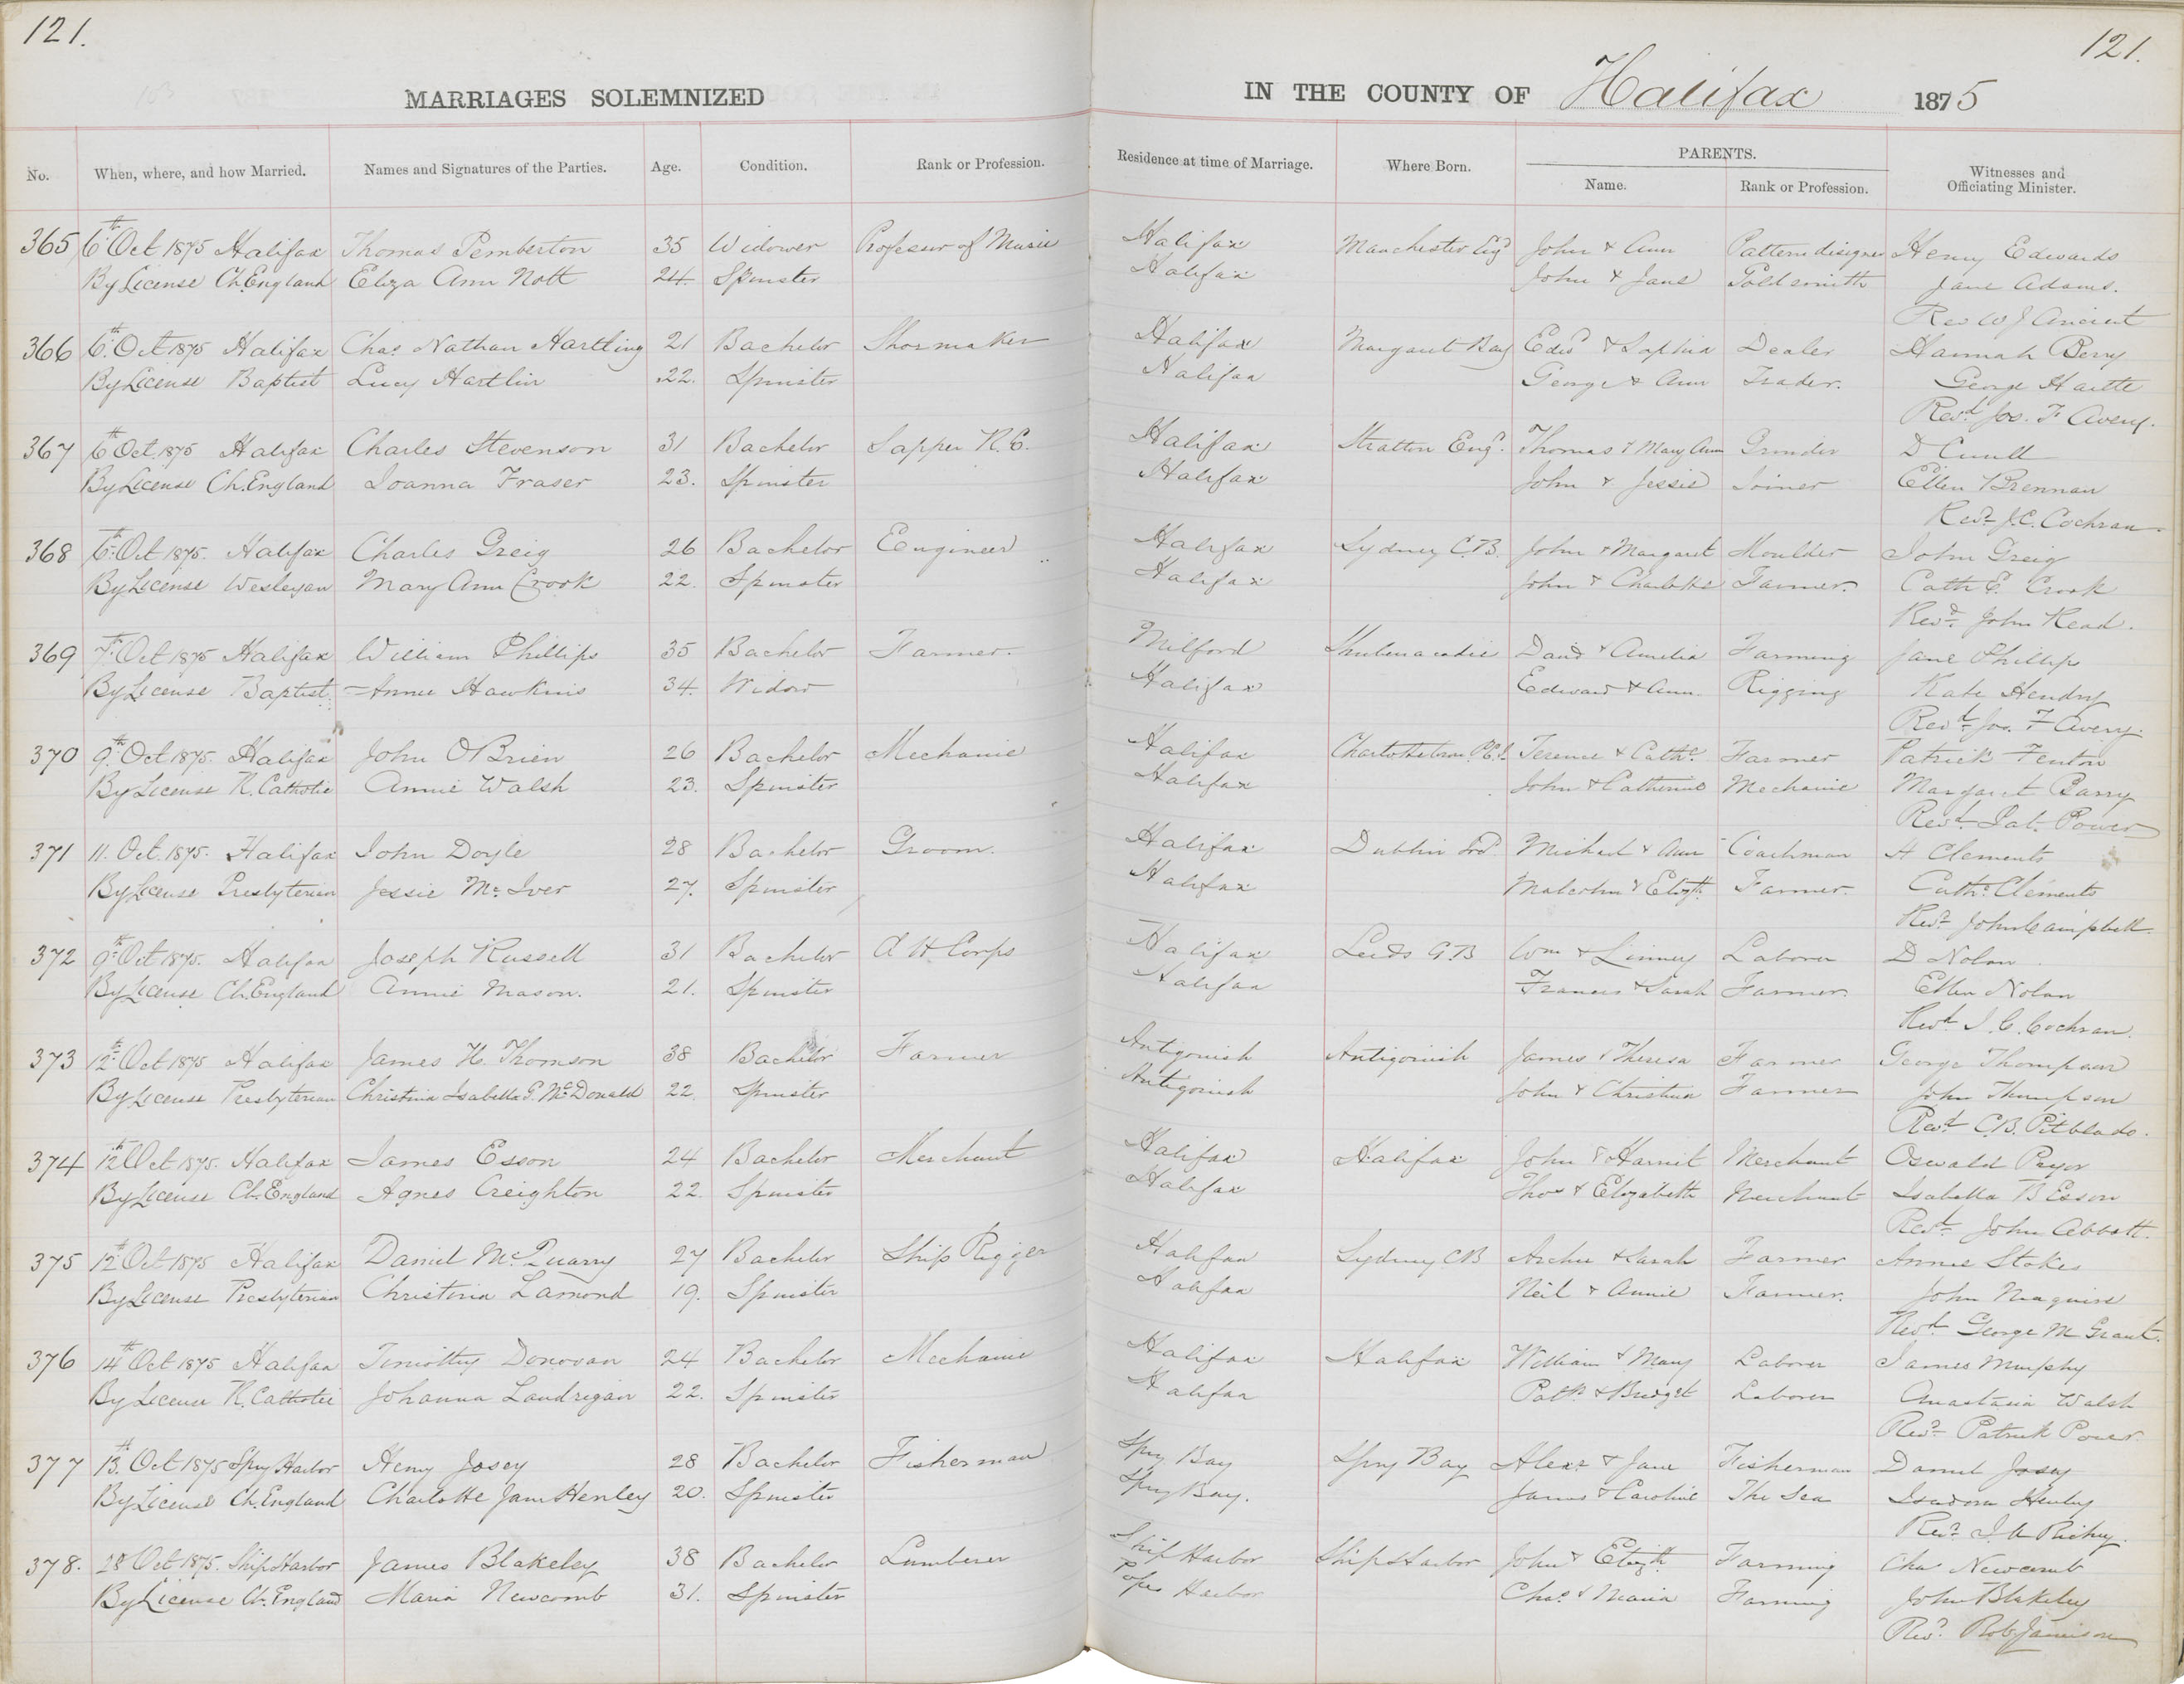 121.
121.
MARRIAGES SOLEMNIZED
IN THE COUNTY OF Halifax 1875
No. When, where, and how Married. Names and Signatures of the Parties. Age. Condition. Rank or Profession. Residence at time of Marriage. Where Born. PARENTS. Name. Rank or Profession. Witnesses and Officiating Minister.
365 6th Oct 1875 Halifax Thomas Pemberton 35 Widower Professor of Music Halifax Manchester Eng John & Ann Pattern disigner Henry Edwards
By License Ch. England Eliza Ann Nott 24. Spinster Halifax John & Jane Goldsmith Jane Adams.
Rev W J Ancient
366 6th Oct 1875 Halifax Chas Nathan Hartling 21 Bachelor Shoemaker Halifax Margaret Bay Edwd & Sophia Dealer Hannah Berry
By License Baptist Lucy Hartlin 22. Spinster Halifax George & Ann Trader. George
Revd Jos. F Avery.
367 6th Oct. 1875 Halifax Charles Stevenson 31 Bachelor Sapper R.E. Halifax Stratton Engd. Thomas & Mary Ann Grinder D
By License Ch. England Joanna Fraser 23. Spinster Halifax John & Jessie Joiner Ellen Brennan
Revd J.C. Cochran
368 6th Oct 1875. Halifax Charles Greig 26 Bachelor Engineer Halifax Sydney C.B. John & Margaret Moulder John Greig
By License Wesleyan Mary Ann Crook 22. Spinster Halifax John & Charlotte Farmer. Cath E. Crook
Revd. John Read.
369 7th Oct 1875 Halifax William Phillips 35 Bachelor Farmer. Milford Shubenacadie David & Amelia Farming Jane Phillips
By License Baptist Annie Hawkins 34. Widow Halifax Edward & Ann. Rigging Kate Hendry
Revd Jos. F Avery.
370 9th Oct 1875. Halifax John OBrien 26 Bachelor Mechanic Halifax Charlottetown P.E.I. Terence & Cathe Farmer Patrick Fenton
By License R. Catholic Annie Walsh 23. Spinster Halifax John & Catherine Mechanic Margaret Barry
Revd. Pat. Power
371 11. Oct. 1875. Halifax John Doyle 28 Bachelor Groom. Halifax Dublin Ird. Michael & Ann Coachman H Clements
By License Presbyterian Jessie McIver 27. Spinster Halifax Malcolm & Elizth Farmer. Cathe Clements
Revd John Campbell.
372 9th Oct 1875. Halifax Joseph Russell 31 Bachelor A H Corps Halifax Leeds G.B Wm & Linney Laborer D Nolan
By License Ch. England Annie Mason. 21. Spinster Halifax Francis & Sarah Farmer. Ellen Nolan
Revd J. C. Cochran.
373 12th Oct 1875 Halifax James H. Thomson 38 Bachelor Farmer Antigonish Antigonish James & Theresa Farmer George Thompson
By License Presbyterian Christina Isabella G. McDonald 22. Spinster Antigonish John & Christina Farmer John Thompson
Revd C.B. Pitblado.
374 12th Oct 1875. Halifax James Esson 24 Bachelor Merchant Halifax Halifax John & Harriet Merchant Oswald Pryor
By License Ch. England Agnes Creighton 22. Spinster Halifax Thos & Elizabeth Merchant Isabella B Esson
Revd. John Abbott.
375 12th Oct 1875 Halifax Daniel McQuarry 27 Bachelor Ship Rigger Halifax Sydney CB Archie & Sarah Farmer Annie Stokes
By License Presbyterian Christina Lamond 19. Spinster Halifax Neil & Annie Farmer. John Maguire
Revd. George M Grant.
376 14th Oct 1875 Halifax Timothy Donovan 24 Bachelor Mechanic Halifax Halifax William & Mary Laborer James Murphy
By License R. Catholic Johanna Landrigan 22. Spinster Halifax Patk & Bridget Laborer Anastasia Walsh
Revd Patrick Power
377 13th. Oct 1875 Spry Harbor Henry Josey 28 Bachelor Fisherman Spry Bay Spry Bay Alexr & Jane Fisherman Daniel Josey
By License Ch. England Charlotte Jane Henley 20. Spinster Spry Bay. James & Caroline The Sea Isadora Henley
Revd J. A Richey.
378. 28 Oct 1875. Ship Harbor James Blakeley 38 Bachelor Lumberer Ship Harbor Ship Harbor John & Elizth. Farming Chas Newcomb
By License Ch. England Maria Newcomb 31. Spinster Popes Harbor Chas & Maria Farming John Blakeley
Revd. Rob Jamieson